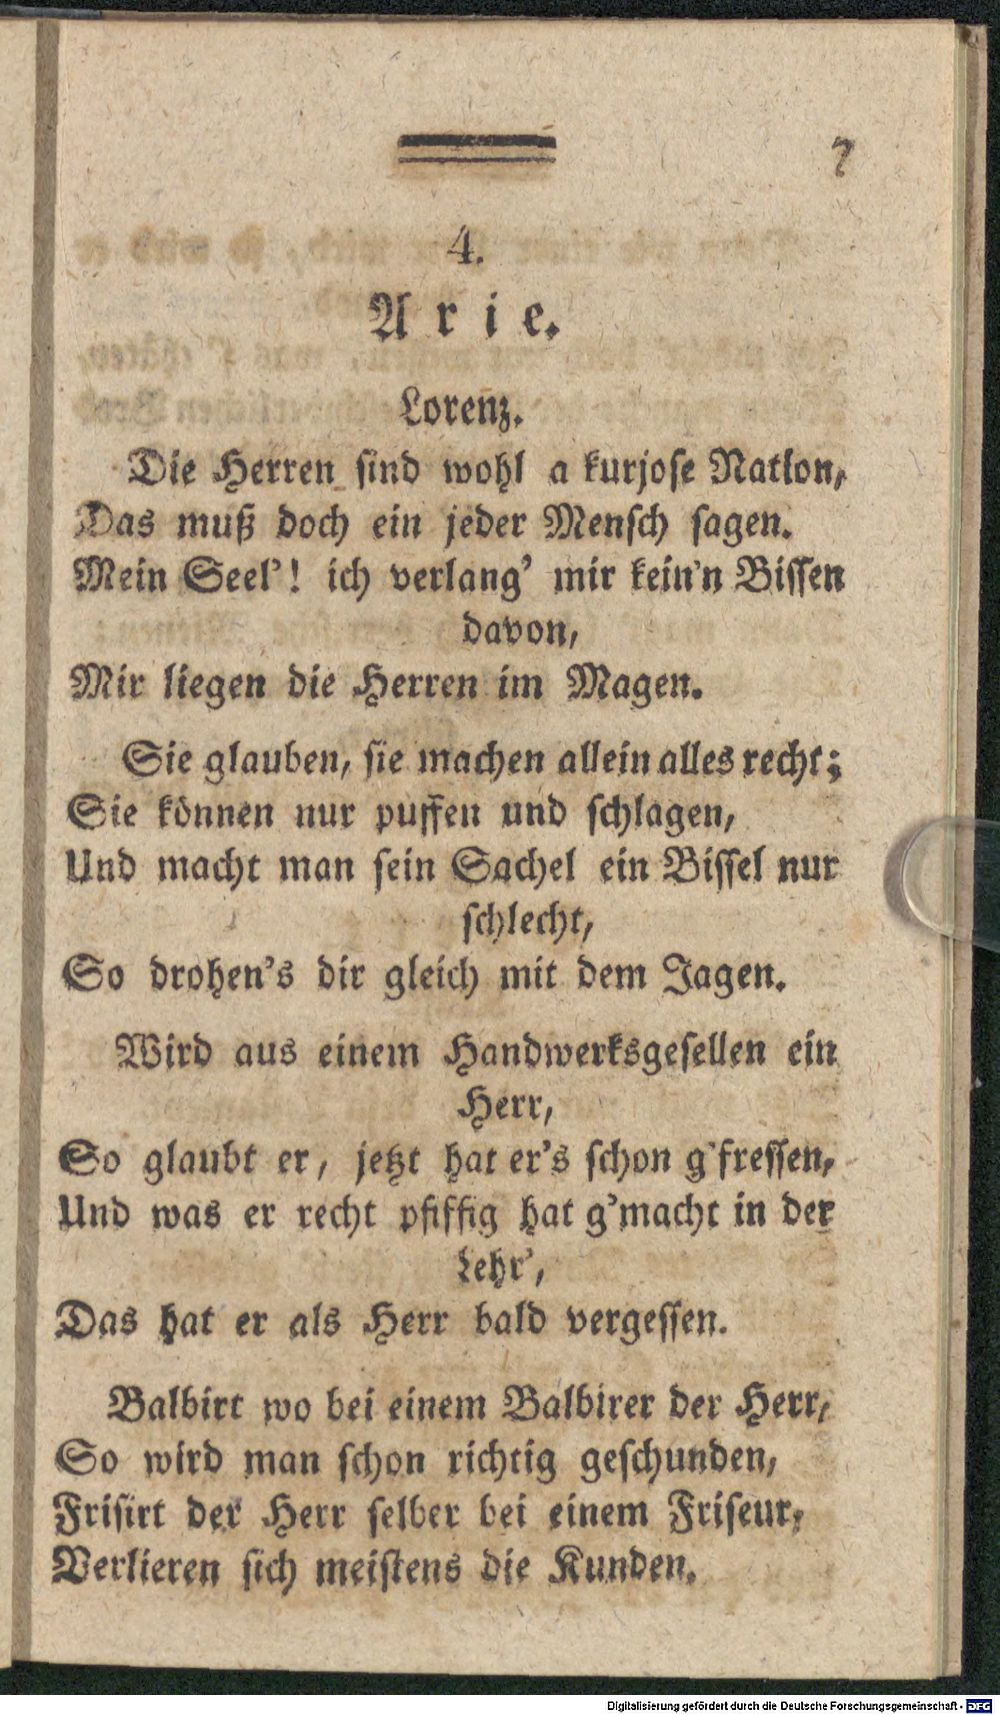 7
4.
Arie.
Lorenz.
Die Herren sind wohl a kurjose Nation,
Das muß doch ein jeder Mensch sagen.
Mein Seel'! ich verlang' mir kein'n Bissen
davon,
Mir liegen die Herren im Magen.
Sie glauben, sie machen allein alles recht;
Sie können nur puffen und schlagen,
Und macht man sein Sachel ein Bissel nur
schlecht,
So drohen's dir gleich mit dem Jagen.
Wird aus einem Handwerksgesellen ein
Herr,
So glaubt er, jetzt hat er's schon g'fressen,
Und was er recht pfiffig hat g'macht in der
Lehr',
Das hat er als Herr bald vergessen.
Balbirt wo bei einem Balbirer der Herr,
So wird man schon richtig geschunden,
Frisirt der Herr selber bei einem Friseur,
Verlieren sich meistens die Kunden.
Digitalisierung gefördert durch die Deutsche Forschungsgemeinschaft - DFG